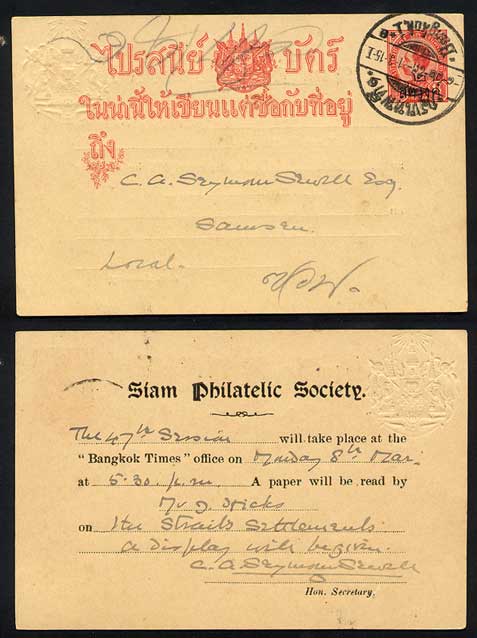 ไปรสนีย์ บัตร์
ในน่านี้ให้เขียนแต่ชื่อกับที่อยู่
ถึง
C. A. Seymour Sewell Esq.
Samsen
Local.
Siam Philatelic Society.
The 47th Session will take place at the
"Bangkok Times" office on Monday 8th Mar.
at 5.30 p.m. A paper will be read by
Mr J. Hicks
on the Straits Settlements
a display will be given.
C. A. Seymour Sewell
Hon. Secretary,